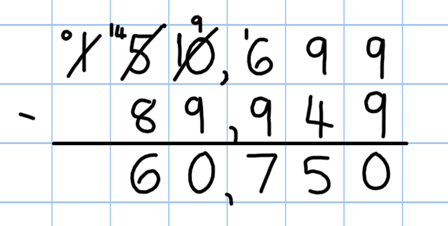 9
0 1 14 5 10, 16 9 9
- 8 9, 9 4 9
6 0, 7 5 0